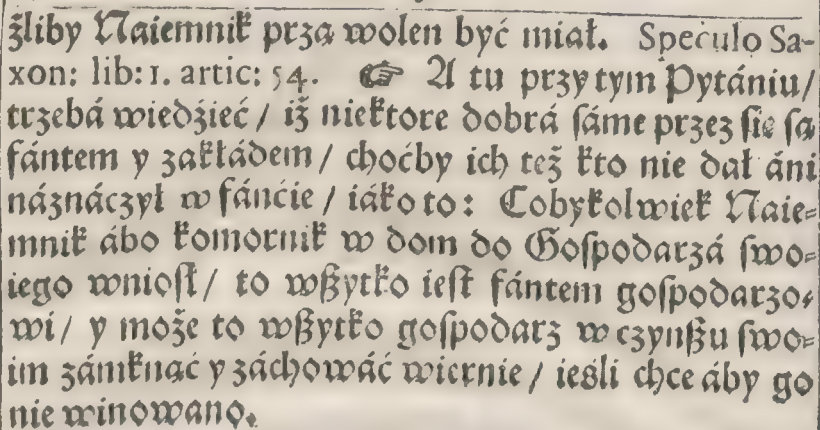 żliby Naiemnik przą wolen być miał. Speculo Sa-
xon: lib: 1. artic: 54. ☞ A tu przy tym Pytániu/
trzebá wiedźieć / iż niektore dobrá sáme przez się są
fántem y zakłádem / choćby ich też kto nie dał áni
náznáczył w fánćie / iáko to: Cobykolwiek Naie-
mnik ábo komornik w dom do Gospodarzá swo-
iego wniosł / to wßytko iest fántem gospodarzo-
wi / y może to wßytko gospodarz w czynßu swo-
im zámknąć y záchowáć wiernie / iesli chce áby go
nie winowano.